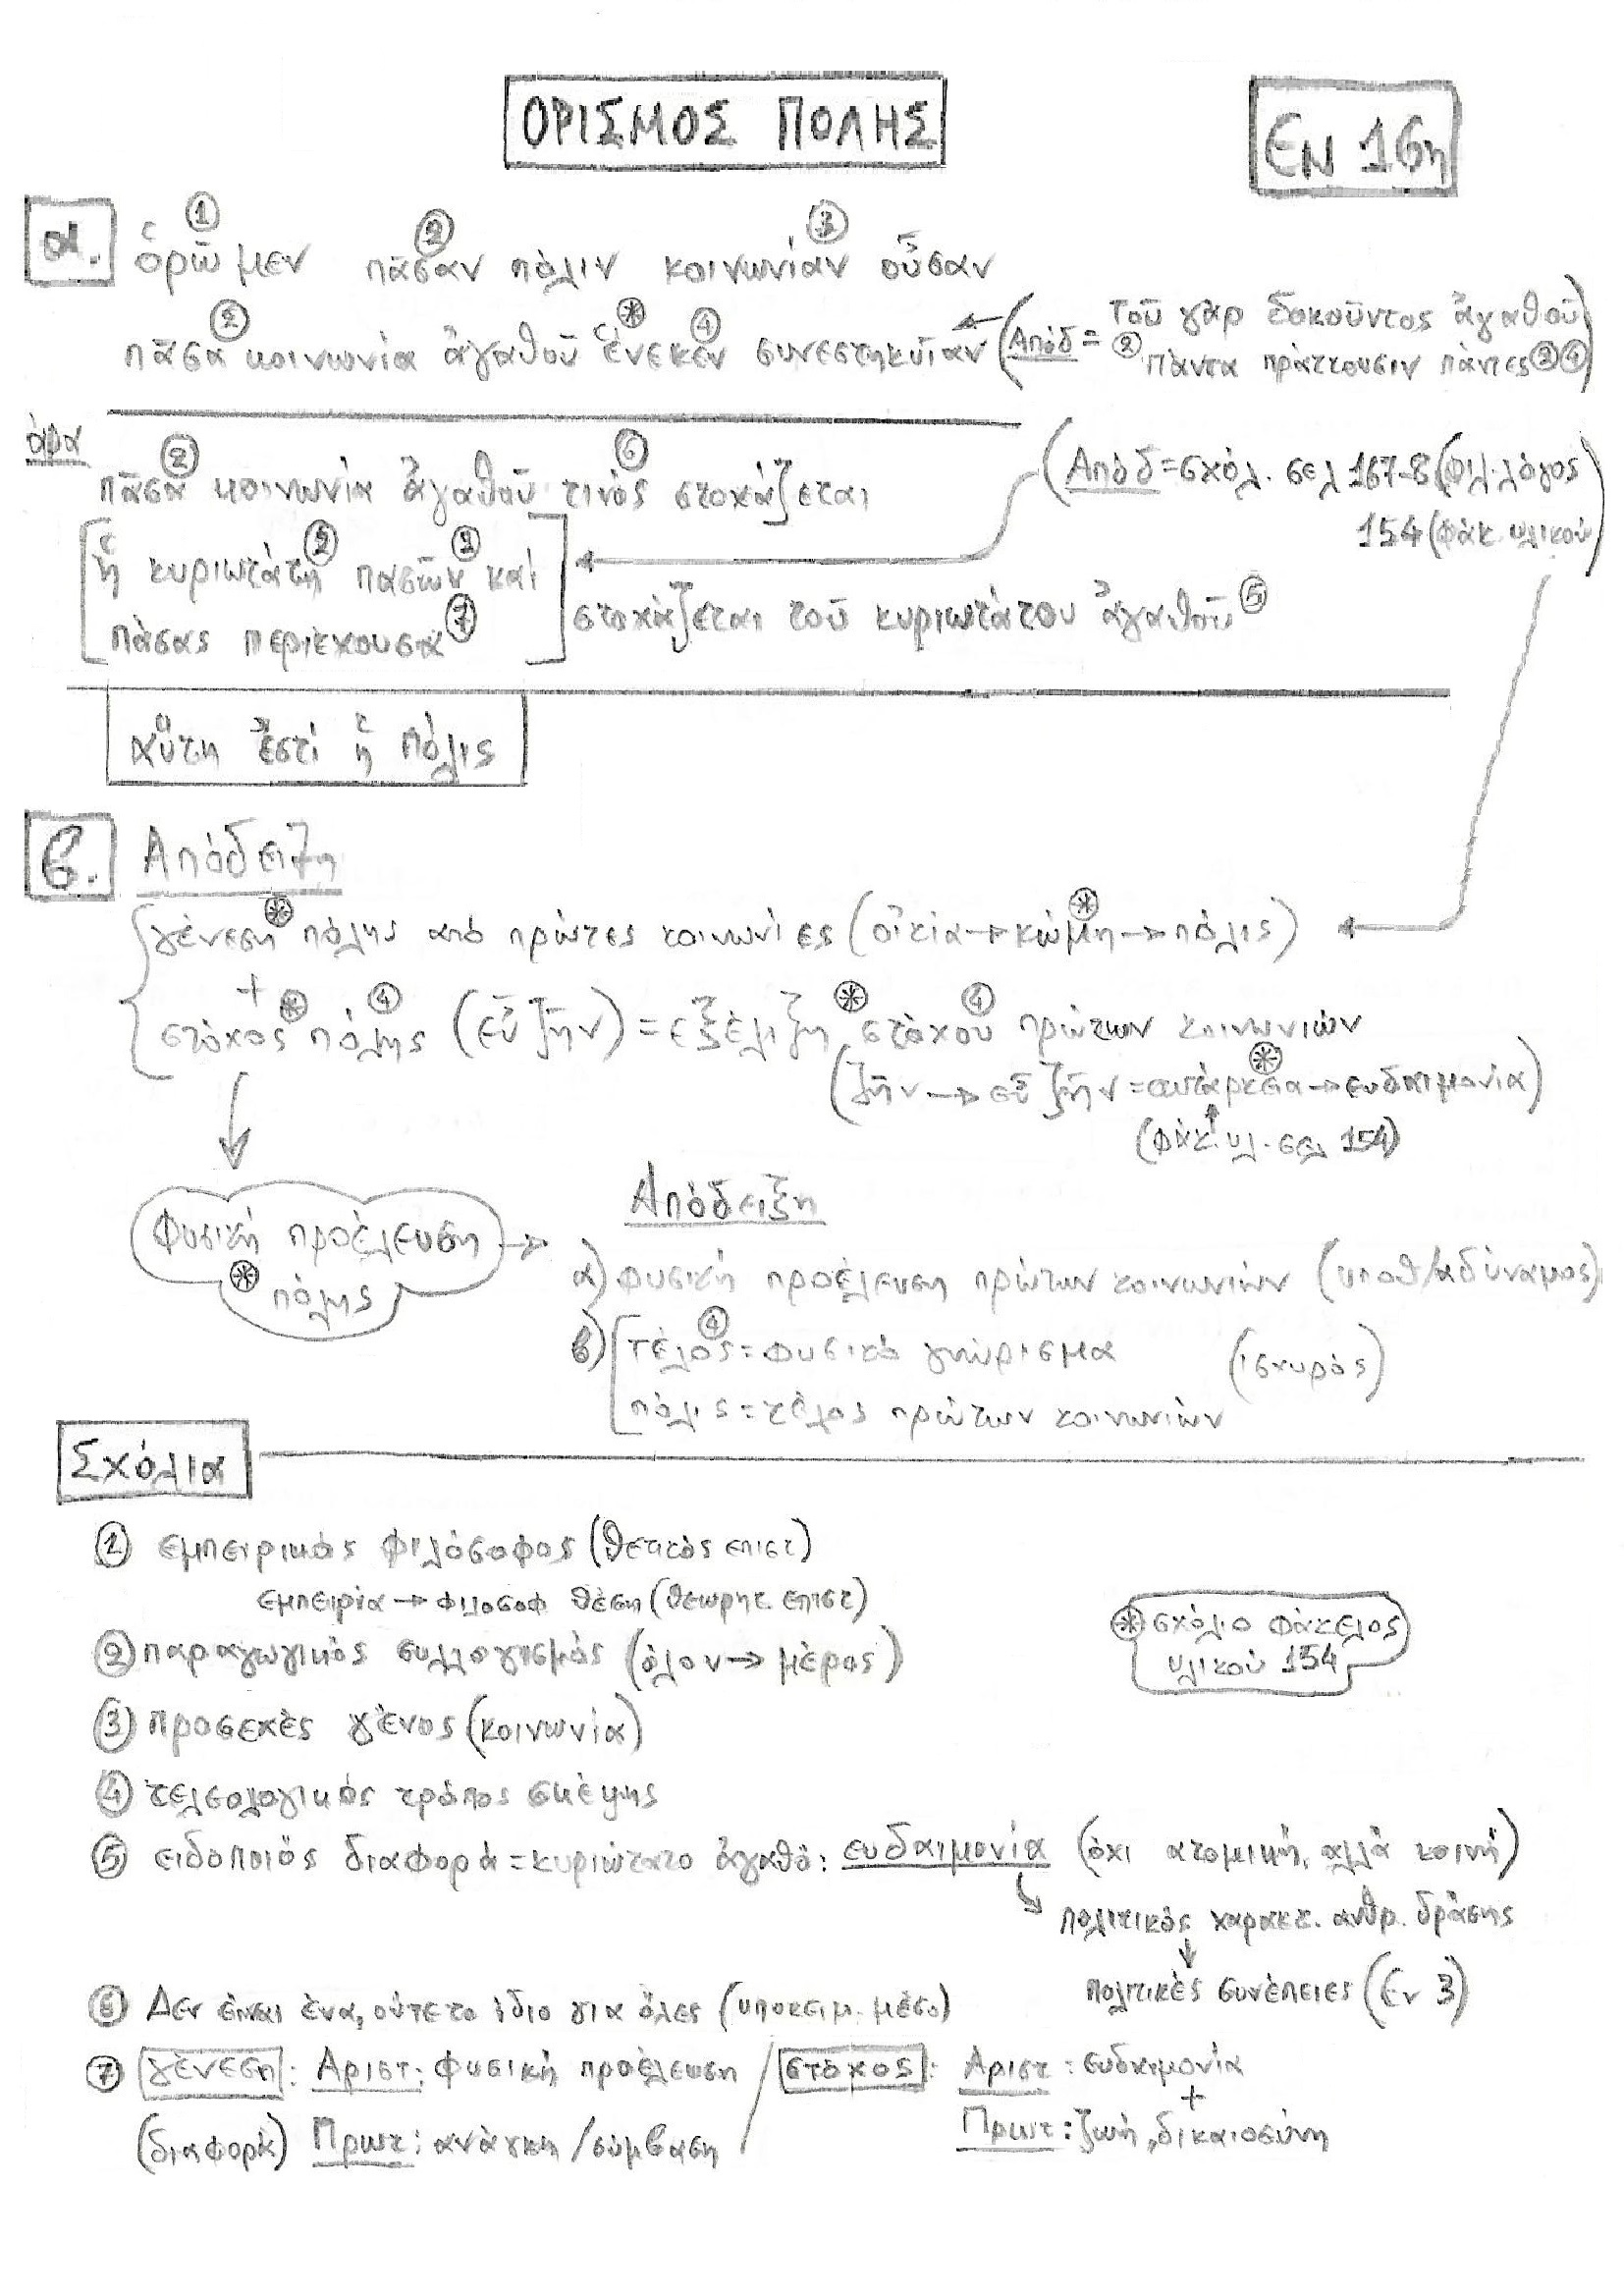 ΟΡΙΣΜΟΣ ΠΟΛΗΣ
ΕΝ 16η
α. ① ② ③
ὁρῶμεν πᾶσαν πόλιν κοινωνίαν οὖσαν
② ⊛ ④
πᾶσα κοινωνία ἀγαθοῦ ἕνεκεν συνεστηκυῖαν (Απόδ = ② τοῦ γὰρ δοκοῦντος ἀγαθοῦ
πάντα πράττουσιν πάντες ②④)
άρα ② ⑥
πᾶσα κοινωνία ἀγαθοῦ τινός στοχάζεται
(Απόδ = σχόλ. σελ 167-8 (Φιλ. λόγος
154 (φάκ. υλικού)
[ἡ κυριωτάτη ② πασῶν ② καί
πάσας περιέχουσα ⑦] στοχάζεται τοῦ κυριωτάτου ἀγαθοῦ ⑤
αὕτη ἐστί ἡ πόλις
β. Απόδειξη
γένεση ⊛ πόλης από πρώτες κοινωνίες (οἰκία → κώμη ⊛ → πόλις)
+
στόχος ⊛ πόλης ④ (εὖ ζῆν) = εξέλιξη ⊛ στόχου ④ πρώτων κοινωνιών
(ζῆν → εὖ ζῆν = αυτάρκεια ⊛ → ευδαιμονία)
(φάκ. υλ. σελ 154)
Φυσική προέλευση →
⊛ πόλης
Απόδειξη
α) φυσική προέλευση πρώτων κοινωνιών (υποθ/αδύναμος)
β) τέλος ④ = φυσικό γνώρισμα (ισχυρός)
πόλις = τέλος πρώτων κοινωνιών
Σχόλια
① εμπειρικός φιλόσοφος (θετικός επιστ)
εμπειρία → φιλοσοφ θέση (θεωρητ. επιστ)
② παραγωγικός συλλογισμός (όλον → μέρος)
⊛ σχόλιο φάκελος
υλικού 154
③ προσεχές γένος (κοινωνία)
④ τελεολογικός τρόπος σκέψης
⑤ ειδοποιός διαφορά = κυριώτατο ἀγαθό: ευδαιμονία (όχι ατομική, αλλά κοινή)
πολιτικός χαρακτ. ανθρ. δράσης
πολιτικές συνέπειες (Εν 3)
⑥ Δεν είναι ένα, ούτε το ίδιο για όλες (υποκειμ. μέσο)
⑦ γένεση: Αριστ: φυσική προέλευση / στόχος: Αριστ: ευδαιμονία
+
(διαφορά) Πρωτ: ανάγκη / σύμβαση Πρωτ: ζωή, δικαιοσύνη